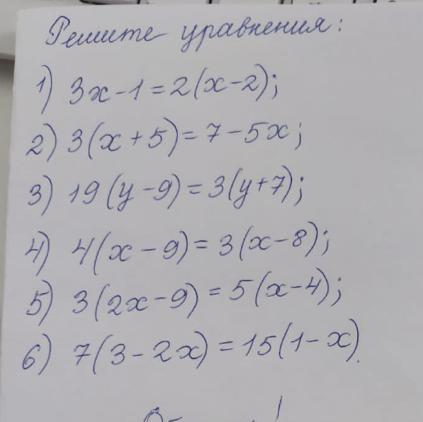 Решите уравнения:
1) 3x-1=2(x-2);
2) 3(x+5)=7-5x;
3) 19(y-9)=3(y+7);
4) 4(x-9)=3(x-8);
5) 3(2x-9)=5(x-4);
6) 7(3-2x)=15(1-x).